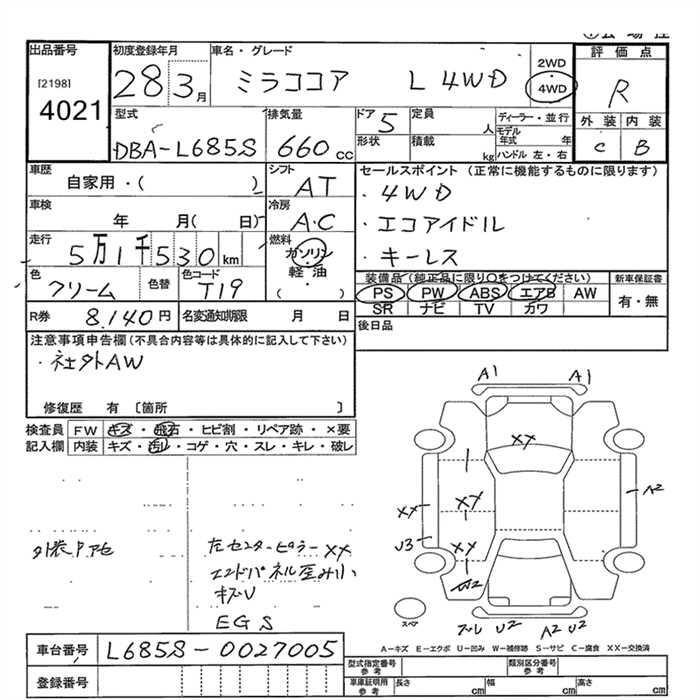 出品番号 初度登録年月 車名・グレード 2WD 評価点
[2198] 28 3月 ミラココア L 4WD 4WD R
4021
型式 排気量 ドア 定員 ディーラー・並行 外装 内装
DBA-L685S 660cc 5 人 モデル年式 年 C B
形状 積載 kg ハンドル 左・右
車歴 シフト セールスポイント (正常に機能するものに限ります)
自家用・( ) AT ・4WD
車検 冷房
年 月( 日) A.C ・エコアイドル
走行 燃料
5万1千530km ガソリン ・キーレス
色 色替 色コード 軽油 装備品(純正品に限り○をつけてください) 新車保証書
クリーム T19 ( ) PS PW ABS エアB AW 有・無
SR ナビ TV カワ
R券 8,140円 名変通知期限 月 日 後日品
注意事項申告欄(不具合内容等は具体的に記入して下さい)
・社外AW
修復歴 有 〔箇所 〕
検査員 FW キズ・飛石・ヒビ割・リペア跡・×要
記入欄 内装 キズ・汚レ・コゲ・穴・スレ・キレ・破レ
A1 A1
XX
XX XX A2
U3 XX
A2
スペア U2 A2 U2
左センターピラーXX
エンドパネル歪み小
キズU
EGS
A-キズ E-エクボ U-凹み W-補修跡 S-サビ C-腐食 XX-交換済
車台番号 L685S-0027005
型式指定番号 参考 類別区分番号 参考
登録番号 車庫証明用 参考 長さ cm 幅 cm 高さ cm